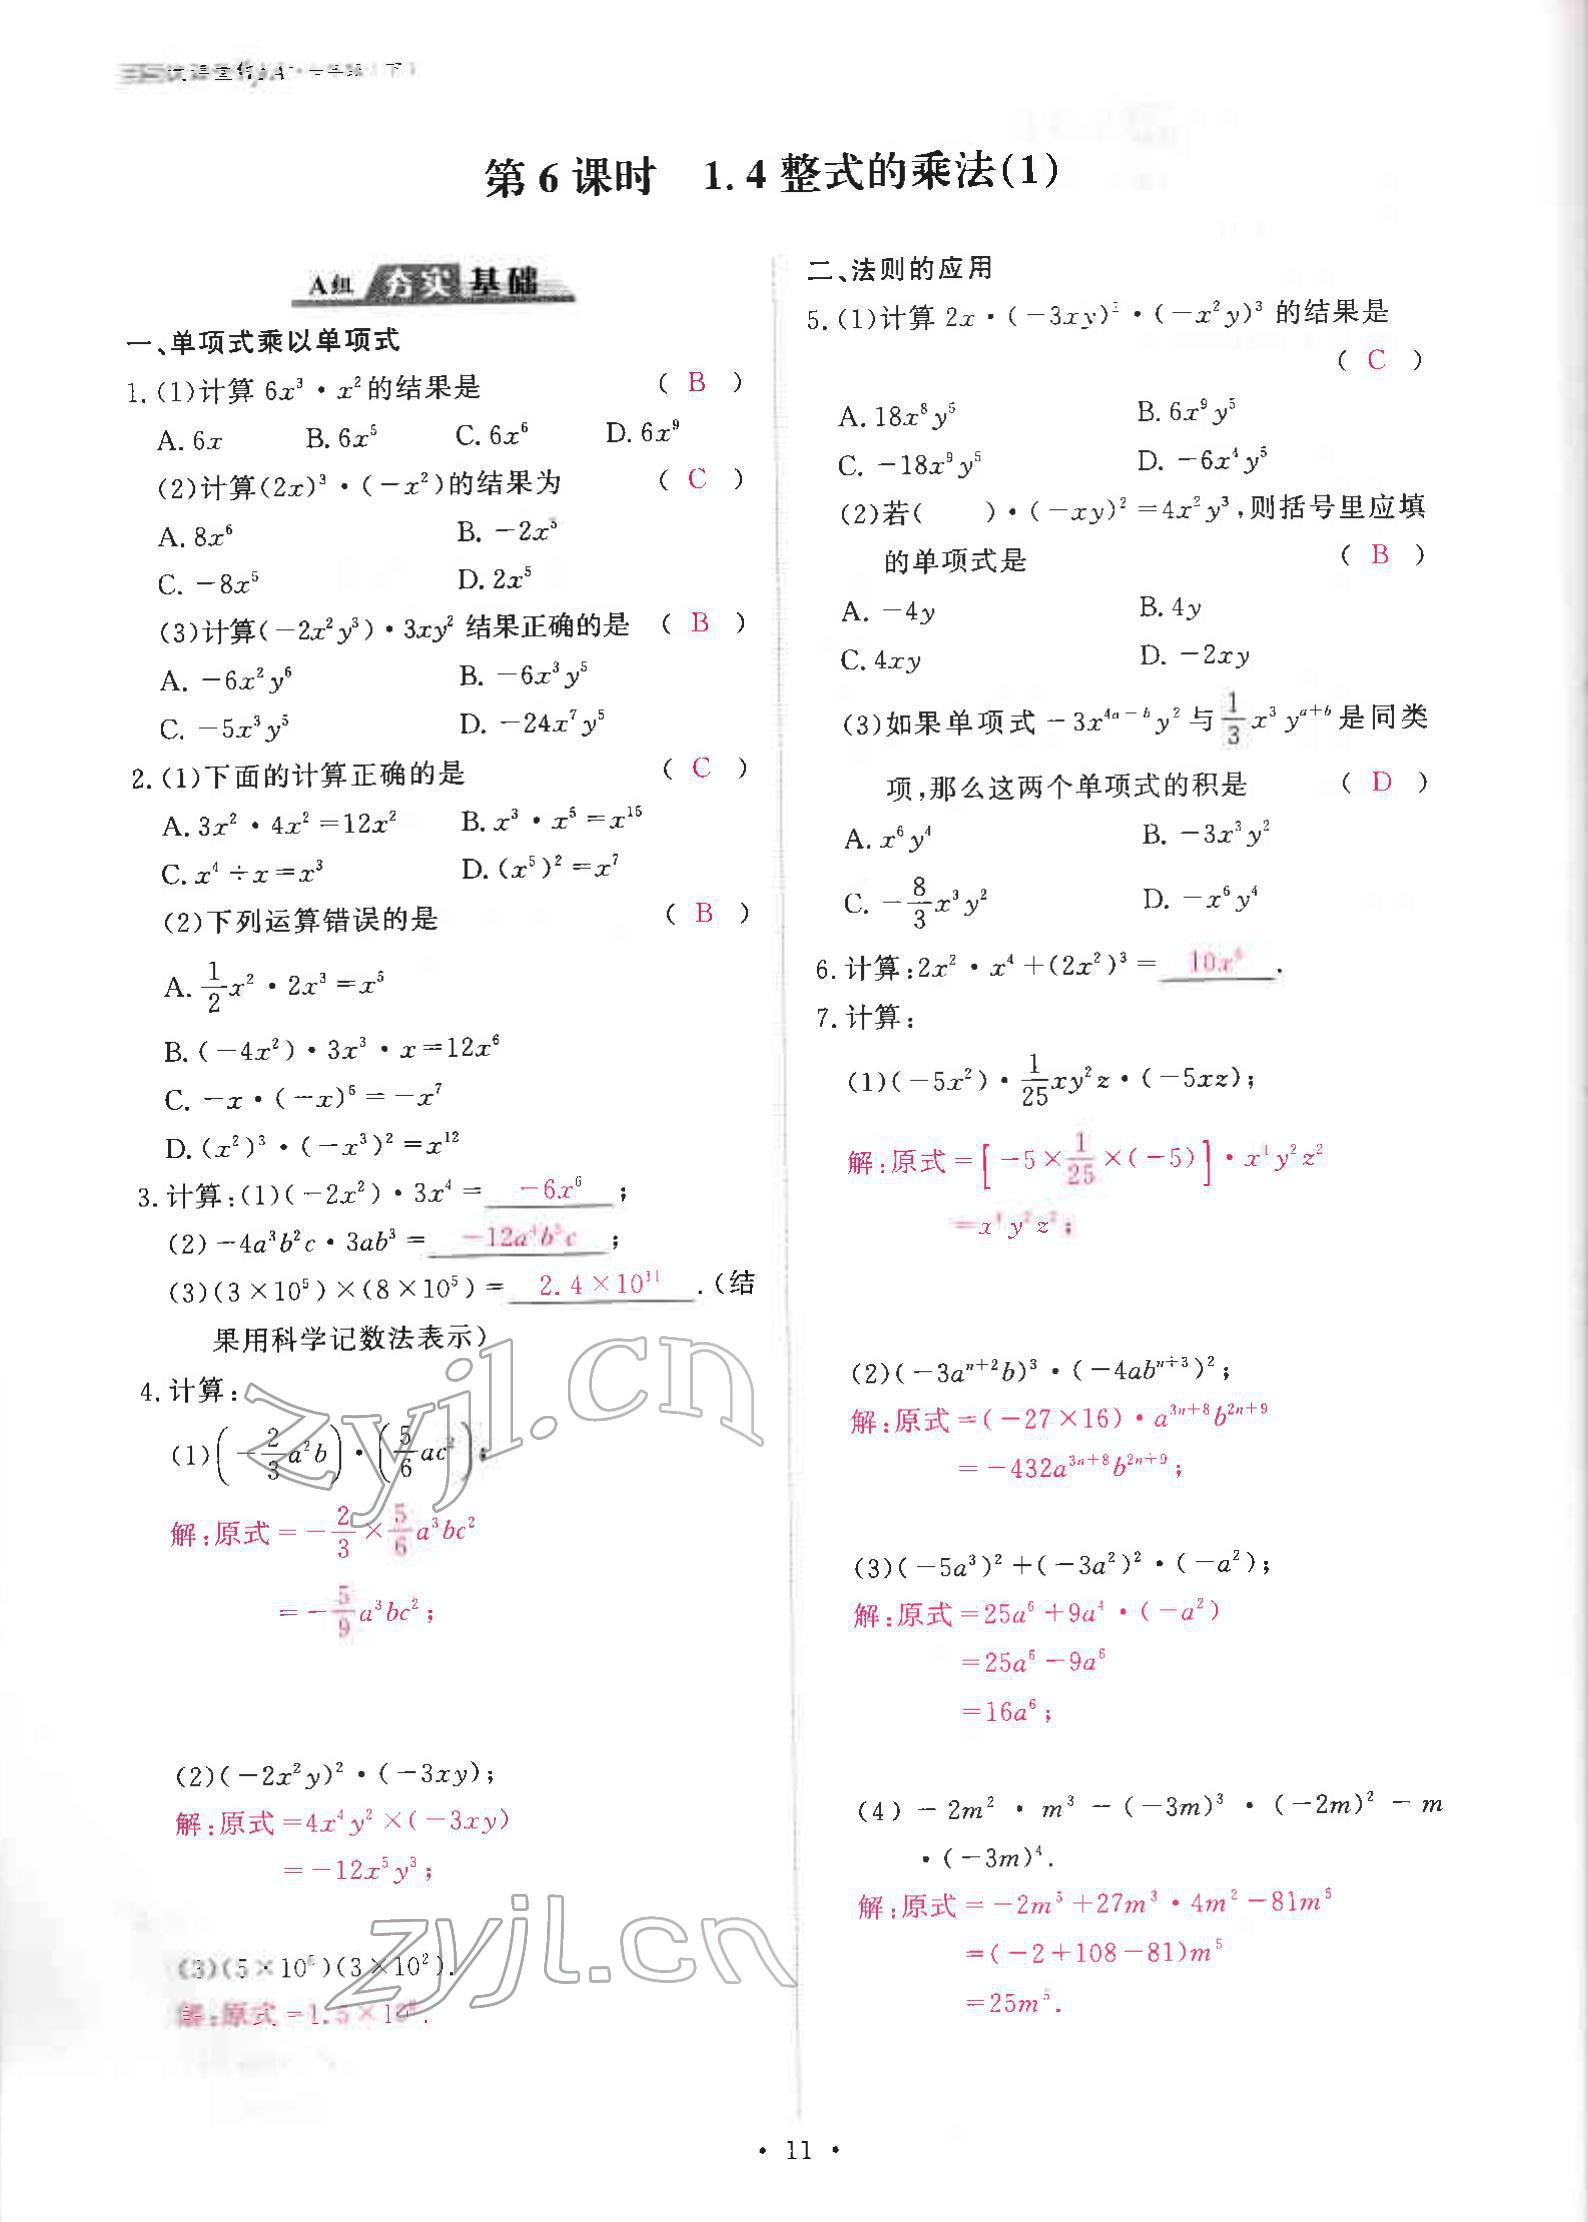 第6课时 1.4整式的乘法(1)
A组 夯实基础
一、单项式乘以单项式
1.(1)计算 6x³·x²的结果是 ( B )
A. 6x B. 6x⁵ C. 6x⁶ D. 6x⁹
(2)计算(2x)³·(-x²)的结果为 ( C )
A. 8x⁶ B. -2x⁵
C. -8x⁵ D. 2x⁵
(3)计算(-2x²y³)·3xy² 结果正确的是 ( B )
A. -6x²y⁶ B. -6x³y⁵
C. -5x³y⁵ D. -24x⁷y⁵
2.(1)下面的计算正确的是 ( C )
A. 3x²·4x²=12x² B. x³·x⁵=x¹⁵
C. x⁴÷x=x³ D. (x⁵)²=x⁷
(2)下列运算错误的是 ( B )
A. 1/2 x²·2x³=x⁵
B. (-4x²)·3x³·x=12x⁶
C. -x·(-x)⁶=-x⁷
D. (x²)³·(-x³)²=x¹²
3.计算:(1)(-2x²)·3x⁴= -6x⁶ ;
(2)-4a³b²c·3ab³= -12a⁴b⁵c ;
(3)(3×10⁵)×(8×10⁵)= 2.4×10¹¹ .(结
果用科学记数法表示)
4.计算:
(1)(-2/3 a²b)·(5/6 ac²);
解:原式=-2/3×5/6 a³bc²
=-5/9 a³bc²;
(2)(-2x²y)²·(-3xy);
解:原式=4x⁴y²×(-3xy)
=-12x⁵y³;
(3)(5×10⁵)(3×10²).
解:原式=1.5×10⁸.
二、法则的应用
5.(1)计算 2x·(-3xy)²·(-x²y)³ 的结果是
( C )
A. 18x⁸y⁵ B. 6x⁹y⁵
C. -18x⁹y⁵ D. -6x⁴y⁵
(2)若( )·(-xy)²=4x²y³,则括号里应填
的单项式是 ( B )
A. -4y B. 4y
C. 4xy D. -2xy
(3)如果单项式-3x⁴ᵃ⁻ᵇy²与1/3 x³yᵃ⁺ᵇ是同类
项,那么这两个单项式的积是 ( D )
A. x⁶y⁴ B. -3x³y²
C. -8/3 x³y² D. -x⁶y⁴
6.计算:2x²·x⁴+(2x²)³= 10x⁶ .
7.计算:
(1)(-5x²)·1/25 xy²z·(-5xz);
解:原式=[-5×1/25×(-5)]·x⁴y²z²
=x⁴y²z²;
(2)(-3aⁿ⁺²b)³·(-4abⁿ⁺³)²;
解:原式=(-27×16)·a³ⁿ⁺⁸b²ⁿ⁺⁹
=-432a³ⁿ⁺⁸b²ⁿ⁺⁹;
(3)(-5a³)²+(-3a²)²·(-a²);
解:原式=25a⁶+9a⁴·(-a²)
=25a⁶-9a⁶
=16a⁶;
(4)-2m²·m³-(-3m)³·(-2m)²-m
·(-3m)⁴.
解:原式=-2m⁵+27m³·4m²-81m⁵
=(-2+108-81)m⁵
=25m⁵.
zyjl.cn
zyjl.cn
· 11 ·